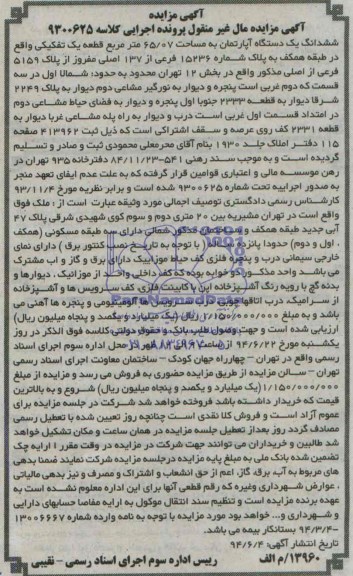 آگهی مزایده
آگهی مزایده مال غیر منقول پرونده اجرایی کلاسه ۹۳۰۰۶۲۵
ششدانگ یک دستگاه آپارتمان به مساحت ۶۵/۰۷ متر مربع قطعه یک تفکیکی واقع
در طبقه همکف به پلاک شماره ۱۵۲۳۶ فرعی از ۱۳۷ اصلی مفروز از پلاک ۵۱۵۹
فرعی از اصلی مذکور واقع در بخش ۱۲ تهران محدود به حدود: شمالا اول در سه
قسمت که دوم غربی است پنجره و دیوار به نورگیر مشاعی دوم دیوار به پلاک ۲۲۴۹
شرقا دیوار به قطعه ۲۳۳۳ جنوبا اول پنجره و دیوار به فضای حیاط مشاعی دوم
در امتداد قسمت اول غربی است درب و دیوار به راه پله مشاعی غربا دیوار به
قطعه ۲۳۳۱ کف روی عرصه و سقف اشتراکی است که ذیل ثبت ۴۱۳۹۶۲ صفحه
۱۱۵ دفتر املاک جلد ۱۹۳۰ بنام آقای محرمعلی محمودی ثبت و صادر و تسلیم
گردیده است و به موجب سند رهنی ۵۴۱-۸۴/۱۱/۲۳ دفترخانه ۹۳۵ تهران در
رهن موسسه مالی و اعتباری قوامین قرار گرفته که به علت عدم ایفای تعهد منجر
به صدور اجراییه تحت شماره ۹۳۰۰۶۲۵ شده است و برابر نظریه مورخ ۹۳/۱۱/۴
کارشناس رسمی دادگستری توصیف اجمالی مورد وثیقه عبارت است از: ملک فوق
واقع است در تهران مشیریه بین ۲۰ متری دوم و سوم کوی شهیدی شرقی پلاک ۴۷
آبی جدید طبقه همکف و ساختمان مذکور شمالی دارای سه طبقه مسکونی (همکف
، اول و دوم) حدودا پانزده سال (با توجه به تاریخ نصب کنتور برق) دارای نمای
خارجی سیمانی درب و پنجره فلزی کف حیاط موزاییک دارای برق و گاز و آب مشترک
می باشد واحد مذکور دو خوابه بوده که کف داخلی واحد از موزاییک، دیوارها و
بدنه گچ با رویه رنگ آشپزخانه اپن با کابینت فلزی کف سرویس ها و آشپزخانه
از سرامیک، درب اتاقها چوبی آلومینیومی و پنجره ها آهنی می
باشد و به مبلغ ۱/۱۵۰/۰۰۰/۰۰۰ ریال (یک میلیارد و یکصد و پنجاه میلیون ریال)
ارزیابی شده است و جهت وصول طلب بانک و حقوق دولتی کلاسه فوق الذکر در روز
یکشنبه مورخ ۹۴/۶/۲۲ از ساعت ۹ الی ۱۲ ظهر در محل اداره سوم اجرای اسناد
رسمی واقع در تهران – چهارراه جهان کودک – ساختمان معاونت اجرای اسناد رسمی
تهران – سالن مزایده از طریق مزایده حضوری به فروش می رسد و مزایده از مبلغ
۱/۱۵۰/۰۰۰/۰۰۰ (یک میلیارد و یکصد و پنجاه میلیون ریال) شروع و به بالاترین
قیمت که خریدار داشته باشد فروخته خواهد شد شرکت در جلسه مزایده برای
عموم آزاد است و فروش کلا نقدی است چنانچه روز تعیین شده با تعطیل رسمی
مصادف گردد روز بعداز تعطیل جلسه مزایده در همان ساعت و مکان تشکیل خواهد
شد طالبین و خریداران می توانند جهت شرکت در مزایده در وقت مقرر با ارایه چک
تضمین شده بانک ملی به مبلغ پایه مزایده درجلسه مزایده شرکت نمایند ضمنا بدهی
های مربوط به آب، برق، گاز، اعم از حق انشعاب و اشتراک و مصرف و نیز بدهی مالیاتی
، عوارض شهرداری وغیره که رقم قطعی آنها برای این اداره معلوم نشده است به
عهده برنده مزایده است و تنظیم سند انتقال موکول به ارایه مفاصا حسابهای دارایی
و شهرداری و... خواهد بود مورد مزایده با توجه به نامه وارده شماره ۱۳۰۰۶۶۶۷
-۹۴/۳/۴ بستانکار بیمه می باشد.
تاریخ انتشار آگهی: ۹۴/۶/۴
۱۳۹۶۰/م الف رییس اداره سوم اجرای اسناد رسمی – نقیبی